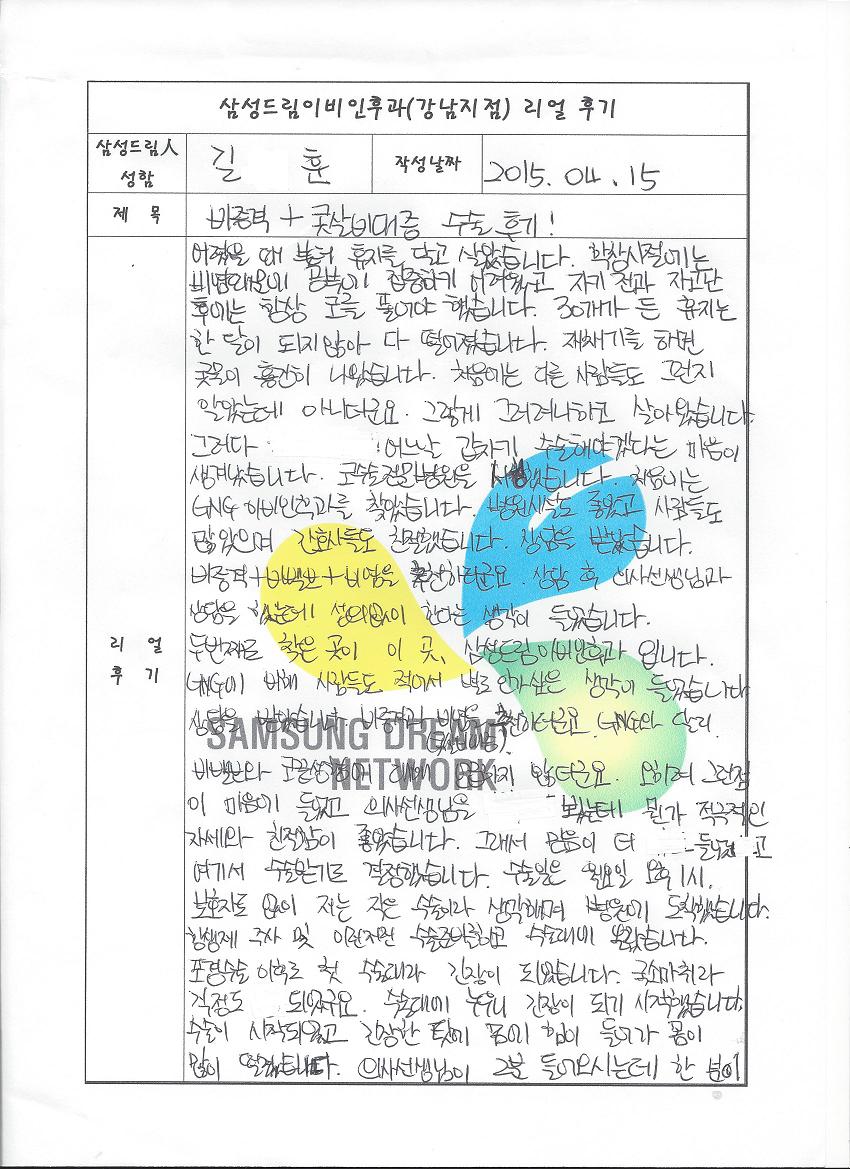 삼성드림이비인후과(강남지점) 리얼 후기
삼성드림人
성함
길 훈
작성날짜
2015. 04. 15
제 목
비중격 + 콧살비대증 수술 후기!
리 얼
후 기
어렸을 때 부터 휴지를 달고 살았습니다. 학창시절에는
비염때문에 공부에 집중하기 어려웠고 자기 전과 자고난
후에는 항상 코를 풀어야 했습니다. 30개가 든 휴지는
한 달이 되지않아 다 떨어졌습니다. 재채기를 하면
콧물이 흥건히 나왔습니다. 처음에는 다른 사람들도 그런지
알았는데 아니더군요. 그렇게 그러려니하고 살아왔습니다.
그러다 어느날 갑자기 수술해야겠다는 마음이
생겨났습니다. 코수술전문병원을 했습니다. 처음에는
GNG 이비인후과를 찾았습니다. 병원시설도 좋았고 사람들도
많았으며 간호사들도 친절했습니다. 상담을 받았습니다.
비중격+비밸브+비염을 추천하더군요. 상담 후 의사선생님과
상담을 했는데 성의없이 한다는 생각이 들었습니다.
두번째로 찾은 곳이 이 곳, 삼성드림이비인후과 입니다.
GNG에 비해 사람들도 적어서 별로 인가싶은 생각이 들었습니다
상담을 받았습니다. 비중격과 비염을 추천하더군요. GNG와 달리.
비밸브와 코끝성형에 대해 않더군요. 오히려 그런점
이 마음에 들었고 의사선생님을 뵀는데 뭔가 적극적인
자세와 친절함이 좋았습니다. 그래서 믿음이 더 들었고
여기서 수술받기로 결정했습니다. 수술일은 월요일 오후 1시.
보호자도 없이 저는 작은 수술이라 생각하며 병원에 도착했습니다.
항생제 주사 및 수술준비하고 수술대에 올랐습니다.
포경수술 이후로 첫 수술대라 긴장이 되었습니다. 국소마취라
걱정도 되었구요. 수술대에 누우니 긴장이 되기 시작했습니다.
수술이 시작되었고 긴장한 탓에 몸에 힘이 들어가 몸이
많이 떨렸습니다. 의사선생님이 2분 들어오시는데 한 분이
SAMSUNG DREAM
NETWORK